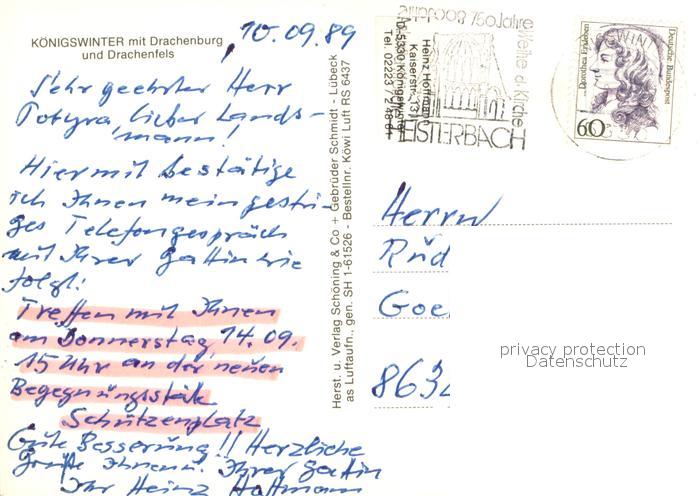 KÖNIGSWINTER mit Drachenburg
und Drachenfels
10.09.89
Sehr geehrter Herr
Potyra, lieber Lands-
mann!
Hiermit bestätige
ich Ihnen mein gestri-
ges Telefongespräch
mit Ihrer Gattin wie
folgt:
Treffen mit Ihnen
am Donnerstag 14.09.
15 Uhr an der neuen
Begegnungsstät
Schützenplatz
Gute Besserung!! Herzliche
Grüße Ihnen u. Ihrer Gattin
Ihr Heinz Hoffmann
Herst. u. Verlag Schöning & Co + Gebrüder Schmidt - Lübeck
as Luftaufn., gen. SH 1-61526 - Bestellnr. Köwi Luft RS 6437
Heinz Hoffmann
Kaiserstr. 131
D-5330 Königswinter
Tel. 02223/
750 Jahre
Weihe d. Kirche
HEISTERBACH
WINT
Dorothea Erxleben
Deutsche Bundespost
60
Herrn
Rüd
Goe
863
privacy protection
Datenschutz